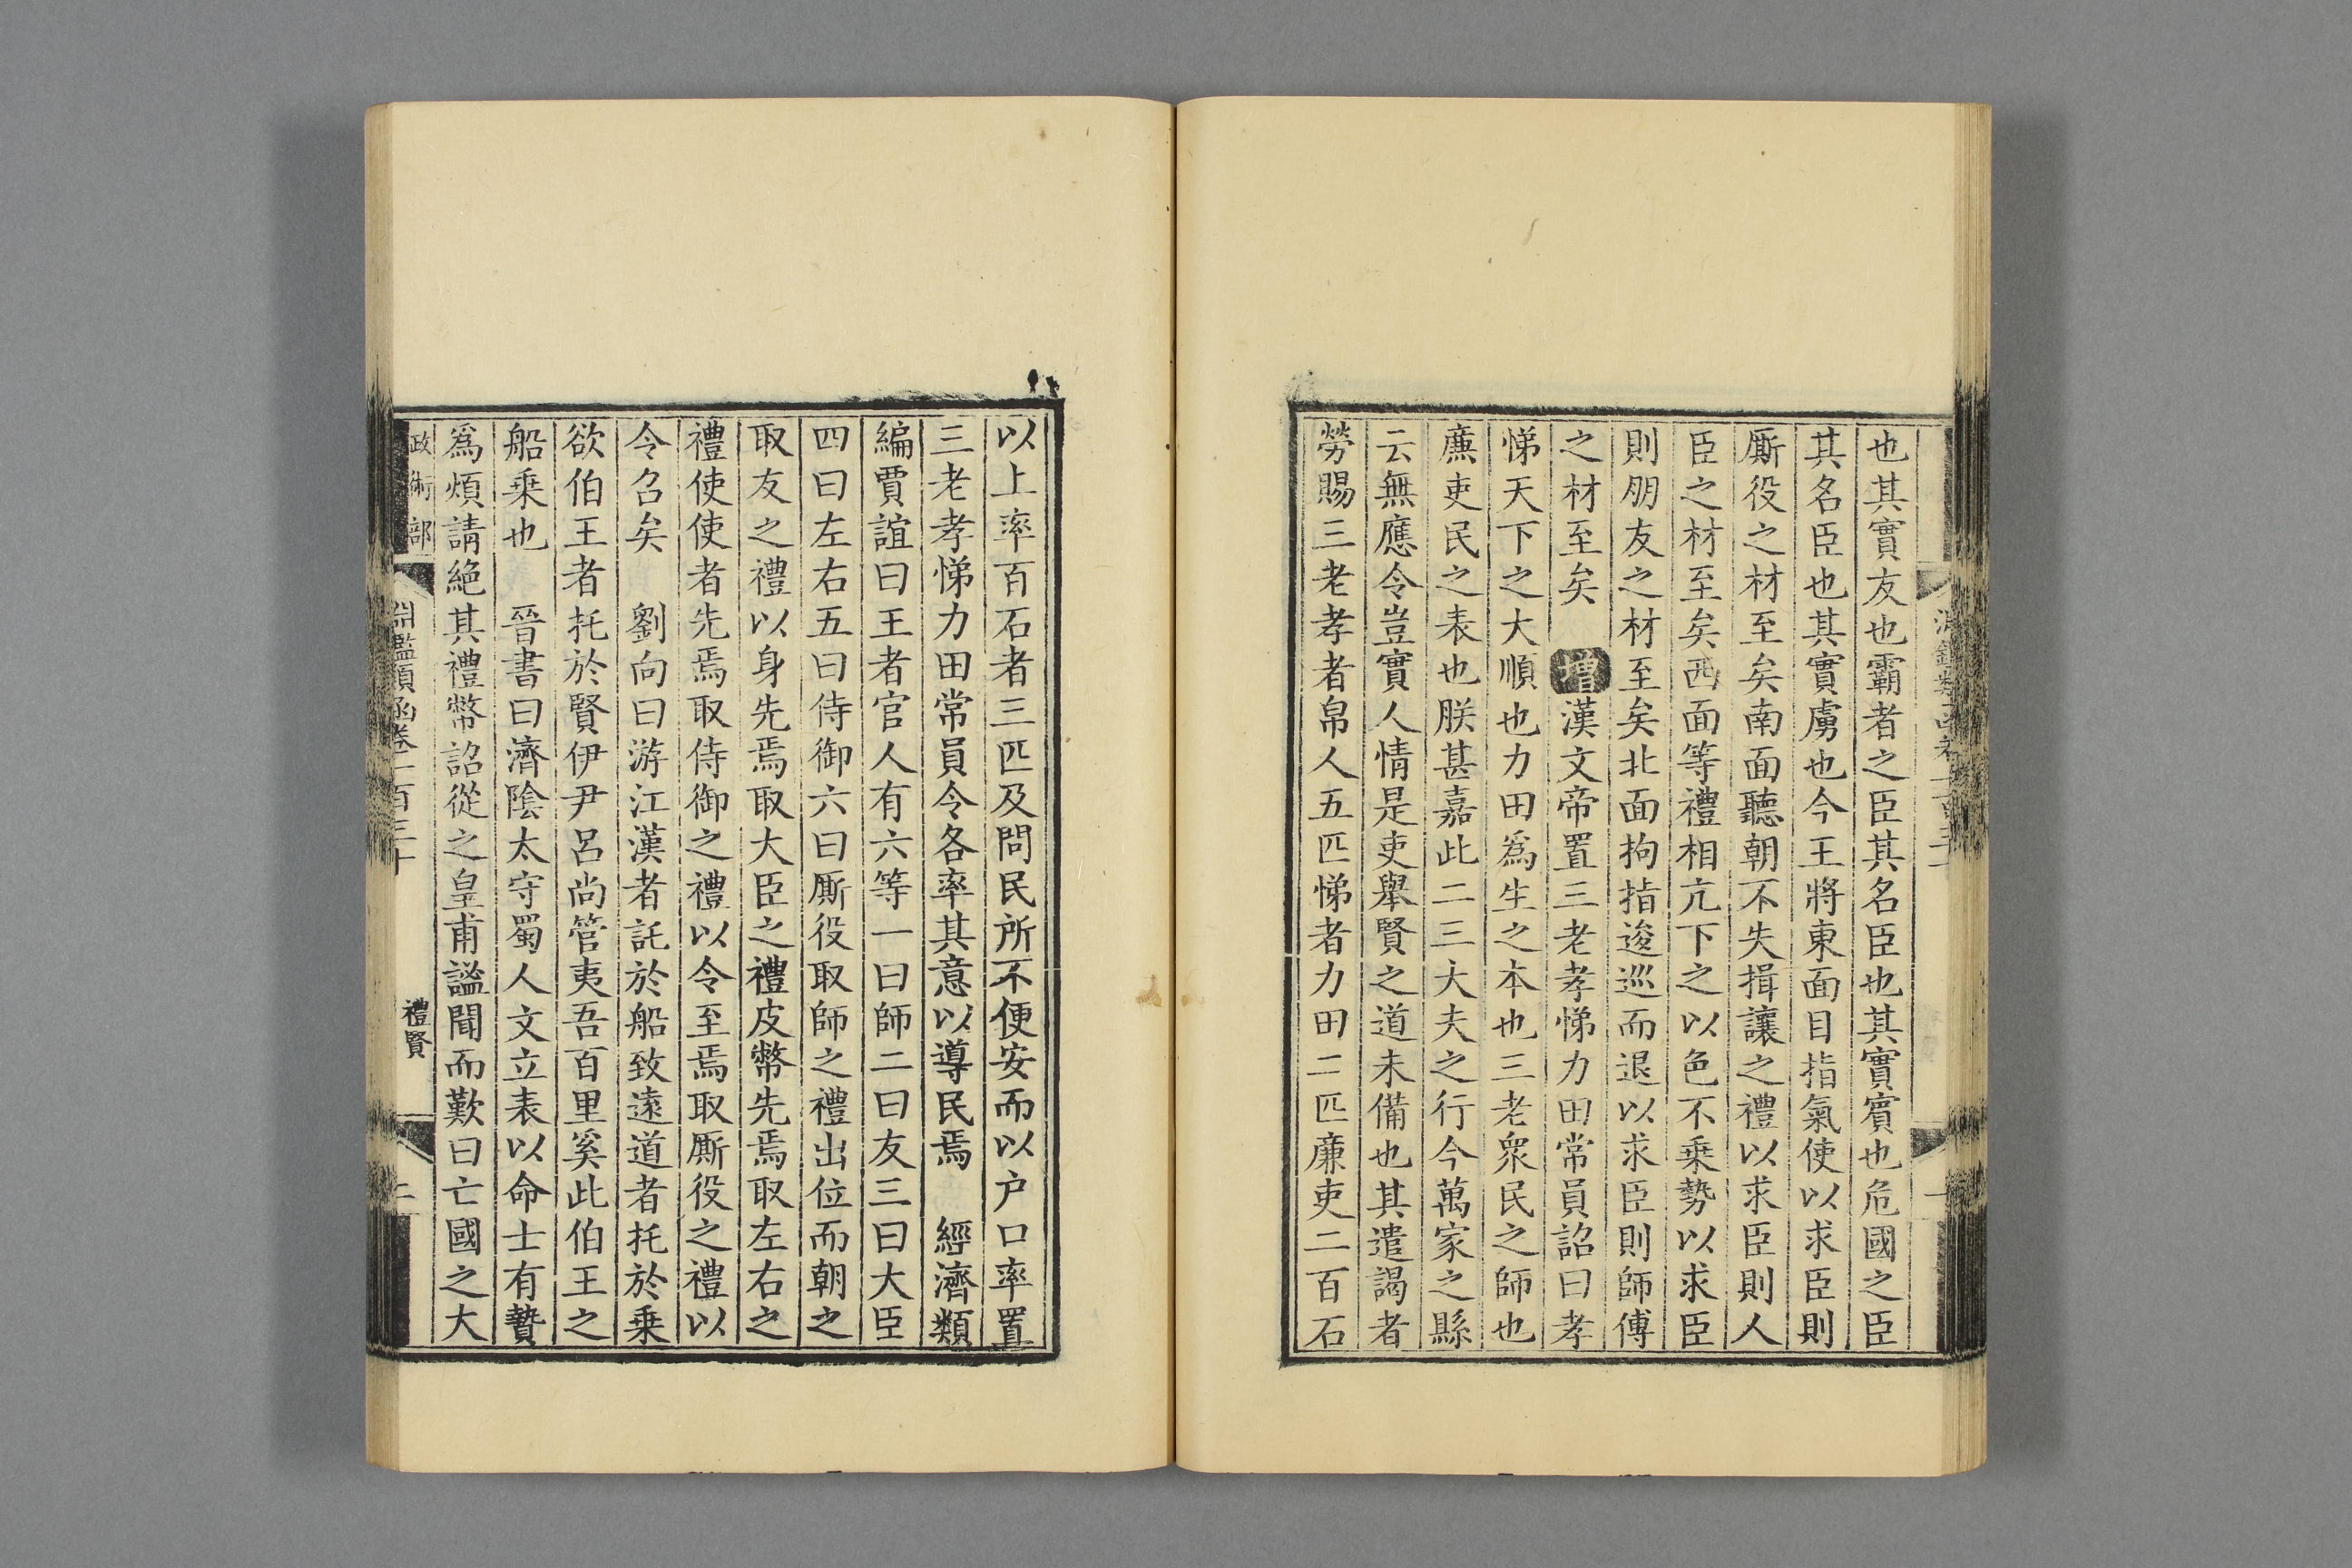 也其實友也霸者之臣其名臣也其實賓也危國之臣
其名臣也其實虜也今王將東面目指氣使以求臣則
厮役之材至矣南面聽朝不失揖讓之禮以求臣則人
臣之材至矣西面等禮相亢下之以色不乗勢以求臣
則朋友之材至矣北面拘指逡巡而退以求臣則師傅
之材至矣 增漢文帝置三老孝悌力田常員詔曰孝
悌天下之大順也力田爲生之本也三老衆民之師也
廉吏民之表也朕甚嘉此二三大夫之行今萬家之縣
云無應令豈實人情是吏舉賢之道未備也其遣謁者
勞賜三老孝者帛人五匹悌者力田二匹廉吏二百石
以上率百石者三匹及問民所不便安而以户口率置
三老孝悌力田常員令各率其意以導民焉 經濟類
編賈誼曰王者官人有六等一曰師二曰友三曰大臣
四曰左右五曰侍御六曰厮役取師之禮出位而朝之
取友之禮以身先焉取大臣之禮皮幣先焉取左右之
禮使使者先焉取侍御之禮以令至焉取厮役之禮以
令召矣 劉向曰游江漢者託於船致遠道者托於乗
欲伯王者托於賢伊尹呂尚管夷吾百里奚此伯王之
船乗也 晉書曰濟陰太守蜀人文立表以命士有贄
爲煩請絶其禮幣詔從之皇甫謐聞而歎曰亡國之大
政術部 淵鑑類函卷一百三十 禮賢 二